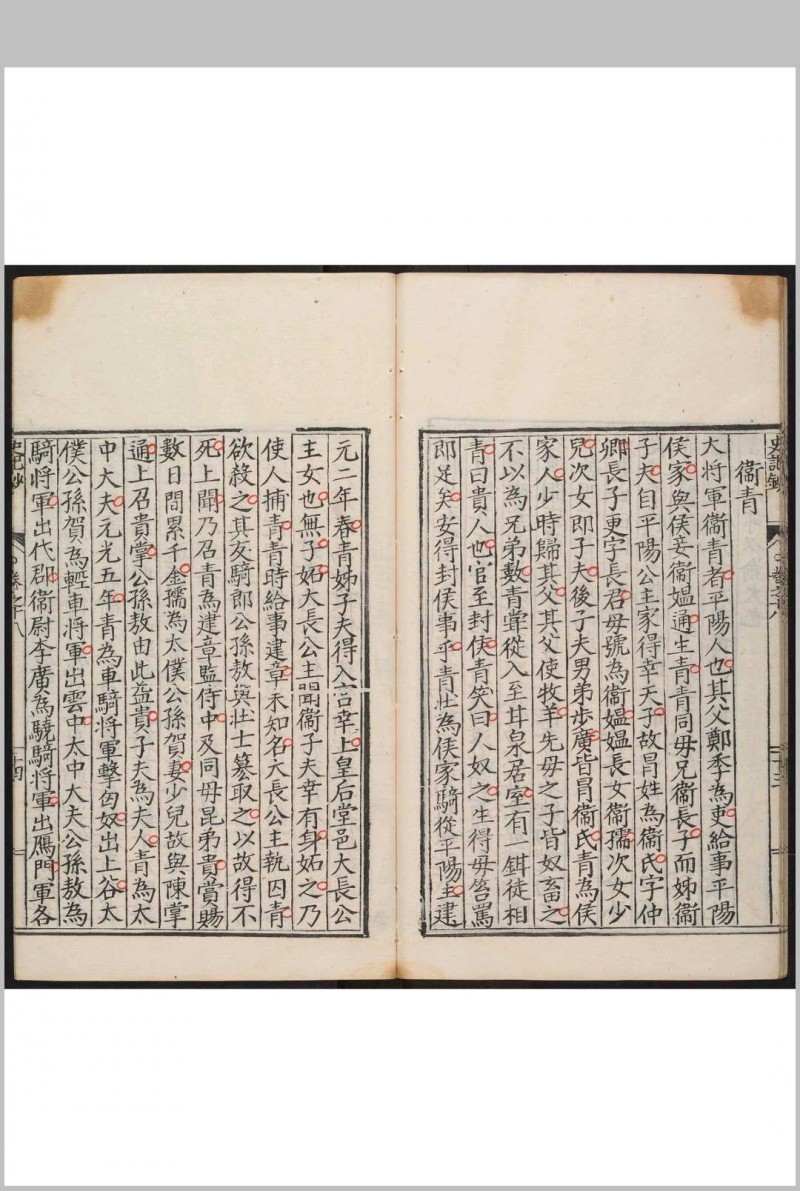 衞青
大將軍衞青者平陽人也其父鄭季為吏給事平陽
侯家與侯妾衞媼通生青青同毋兄衞長子而姊衞
子夫自平陽公主家得幸天子故冒姓為衞氏字仲
卿長子更字長君毋號為衞媼媼長女衞孺次女少
兒次女即子夫後子夫男弟步廣皆冒衞氏青為侯
家人少時歸其父其父使牧羊先母之子皆奴畜之
不以為兄弟數青甞從入至甘泉居室有一鉗徒相
青曰貴人也官至封侯青笑曰人奴之生得毋笞罵
即足矣安得封侯事乎青壯為侯家騎從平陽主建
元二年春青姊子夫得入宮幸上皇后堂邑大長公
主女也無子妬大長公主聞衞子夫幸有身妬之乃
使人捕青青時給事建章未知名大長公主執囚青
欲殺之其友騎郎公孫敖與壯士簒取之以故得不
死上聞乃召青為建章監侍中及同母昆弟貴賞賜
數日間累千金孺為太僕公孫賀妻少兒故與陳掌
通上召貴掌公孫敖由此益貴子夫為夫人青為太
中大夫元光五年青為車騎將軍擊匈奴出上谷太
僕公孫賀為輕車將軍出雲中太中大夫公孫敖為
騎將軍出代郡衞尉李廣為驍騎將軍出鴈門軍各